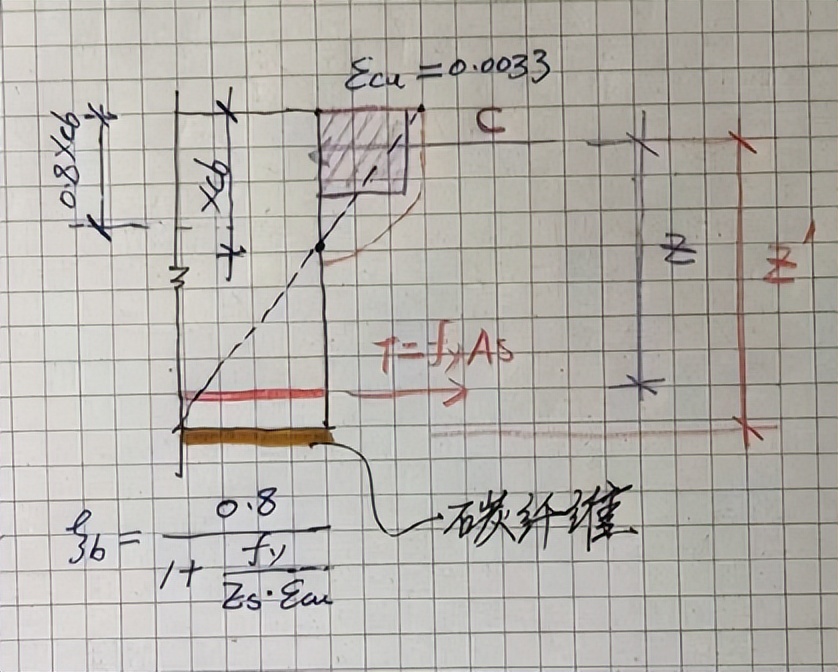 εcu = 0.0033
0.8xcb
xcb
C
z
z'
T = fyAs
ξb = 0.8 / (1 + fy / (Es·εcu))
碳纤维